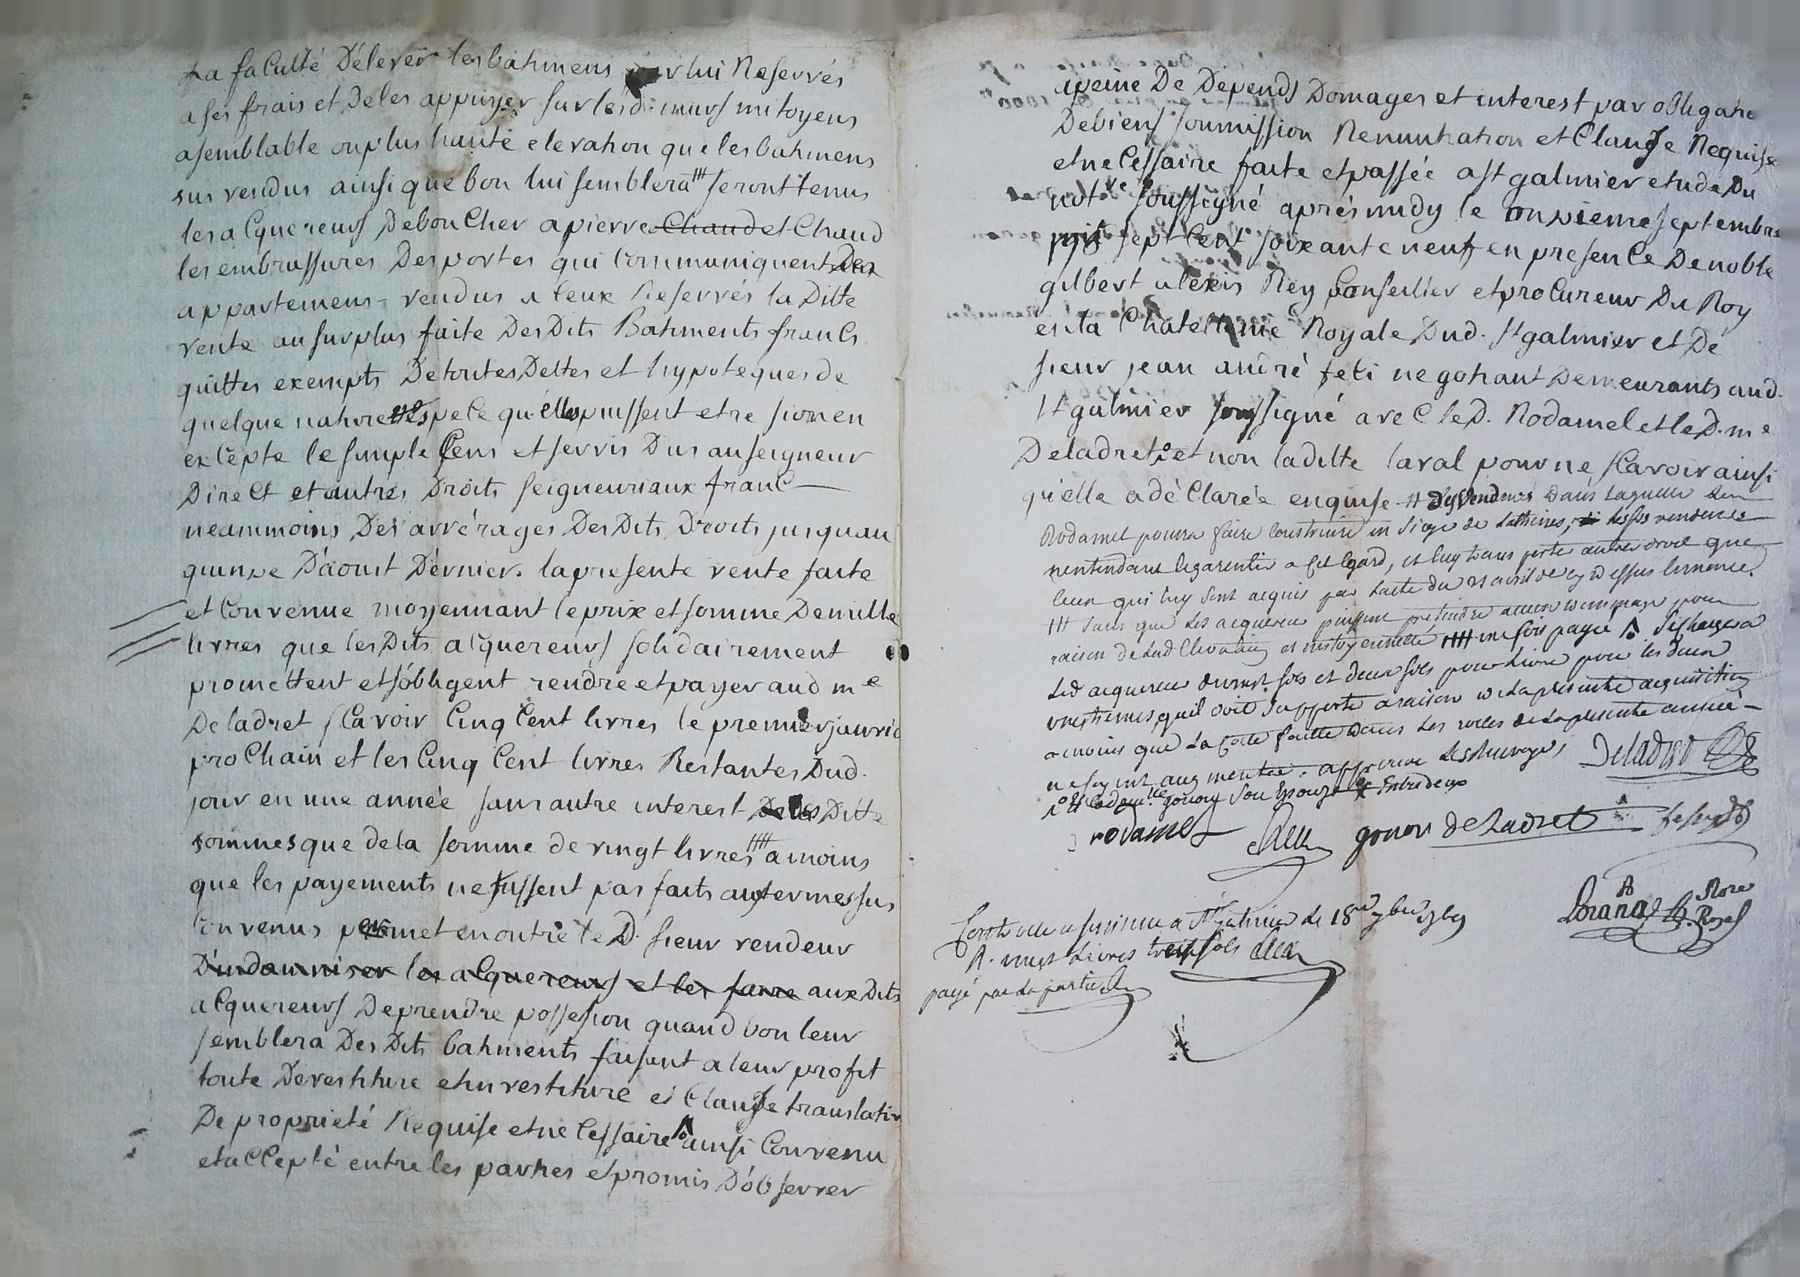 La faculté Délever les batimens par lui Reservés
a ses frais et de les appuyer sur lesd: murs mitoyens
a semblable ou plus haute elevation que les batimens
sus vendus ainsi que bon lui semblera ttt seront tenus
les acquereurs De boucher a pierre Chaud et Chaud
les embrassures Des portes qui Communiquent Des
appartemens vendus a ceux Reservés la Ditte
vente au surplus faite Des Dits Batiments francs
quittes exempts De toutes Dettes et hypoteques de
quelque nature et espece qu'elles puissent etre sion en
excepte le simple Cens et servis Dus au seigneur
Direct et autres Droits seigneuriaux franc
neammoins Des arrérages Des Dits Droits jusquau
quinze D'aoust Dérnier. la presente vente faite
et Convenue moyennant le prix et somme De mille
livres que les Dits acquereurs solidairement
promettent et s'obligent rendre et payer aud me
Deladret sCavoir Cinq Cent livres le premier janvié
proChain et les Cinq Cent livres Restantes Dud.
jour en une année sans autre interest De les Ditte
sommes que de la somme de vingt livres tttt a moins
que les payements ne fussent pas faits aux termes sus
Convenus permet en outre le D. sieur vendeur
D'indamniser les acquereurs et les faire aux Dits
acquereurs De prendre possession quand bon leur
semblera Des Dits batiments faisant a leur profit
toute Devestiture et investiture et Clause translative
De proprieté Requise et neCessaire ainsi Convenu
et acCepté entre les parties et promis D'observer
a peine De Depends Domages et interest par obligation
De biens soumission Renuntiation et Clause Requise
et neCessaire faite et passée a st galmier etude Du
notre soussigné aprés midy le onzieme septembre
mil sept Cent soixante neuf en presence De noble
gilbert alexis Rey Conseillier et proCureur Du Roy
en la Chatellenie Royale Dud. st galmier et De
sieur jean andré negotiant Demeurants aud.
st galmier soussigné avec le D. Rodamel et le D. me
Deladret et non la ditte laval pour ne sCavoir ainsi
qu'elle a déClarée enquise tt des vendeurs dans laquelle
Rodamel pourra faire construire un siege de lattrines, lesds vendeurs
nentendant la garentir a cet egard, et luy transporte autre droit que
ceux qui luy sont acquis par lacte du 21 avril de cy dessus énoncé.
ttt sans que les acquereurs puissent pretendre aucun dommage pour
raison de lad Elevation et mitoyenneté tttt une fois payée se chargera
led acquereur et deux sols pour Livre pour les deux
vingtiemes quil doit supporter a raison de la presente acquisition
a moins que la Cotte faitte dans les roles de la presente année
ne soyent augmentée. approuvé les Deladret
gonon son Epouze Entredeux
rodamel gonon de Ladret
Rore
Controllé a St Galmier le 18me 7bre 1769
R. Livres sols
payé par la partie